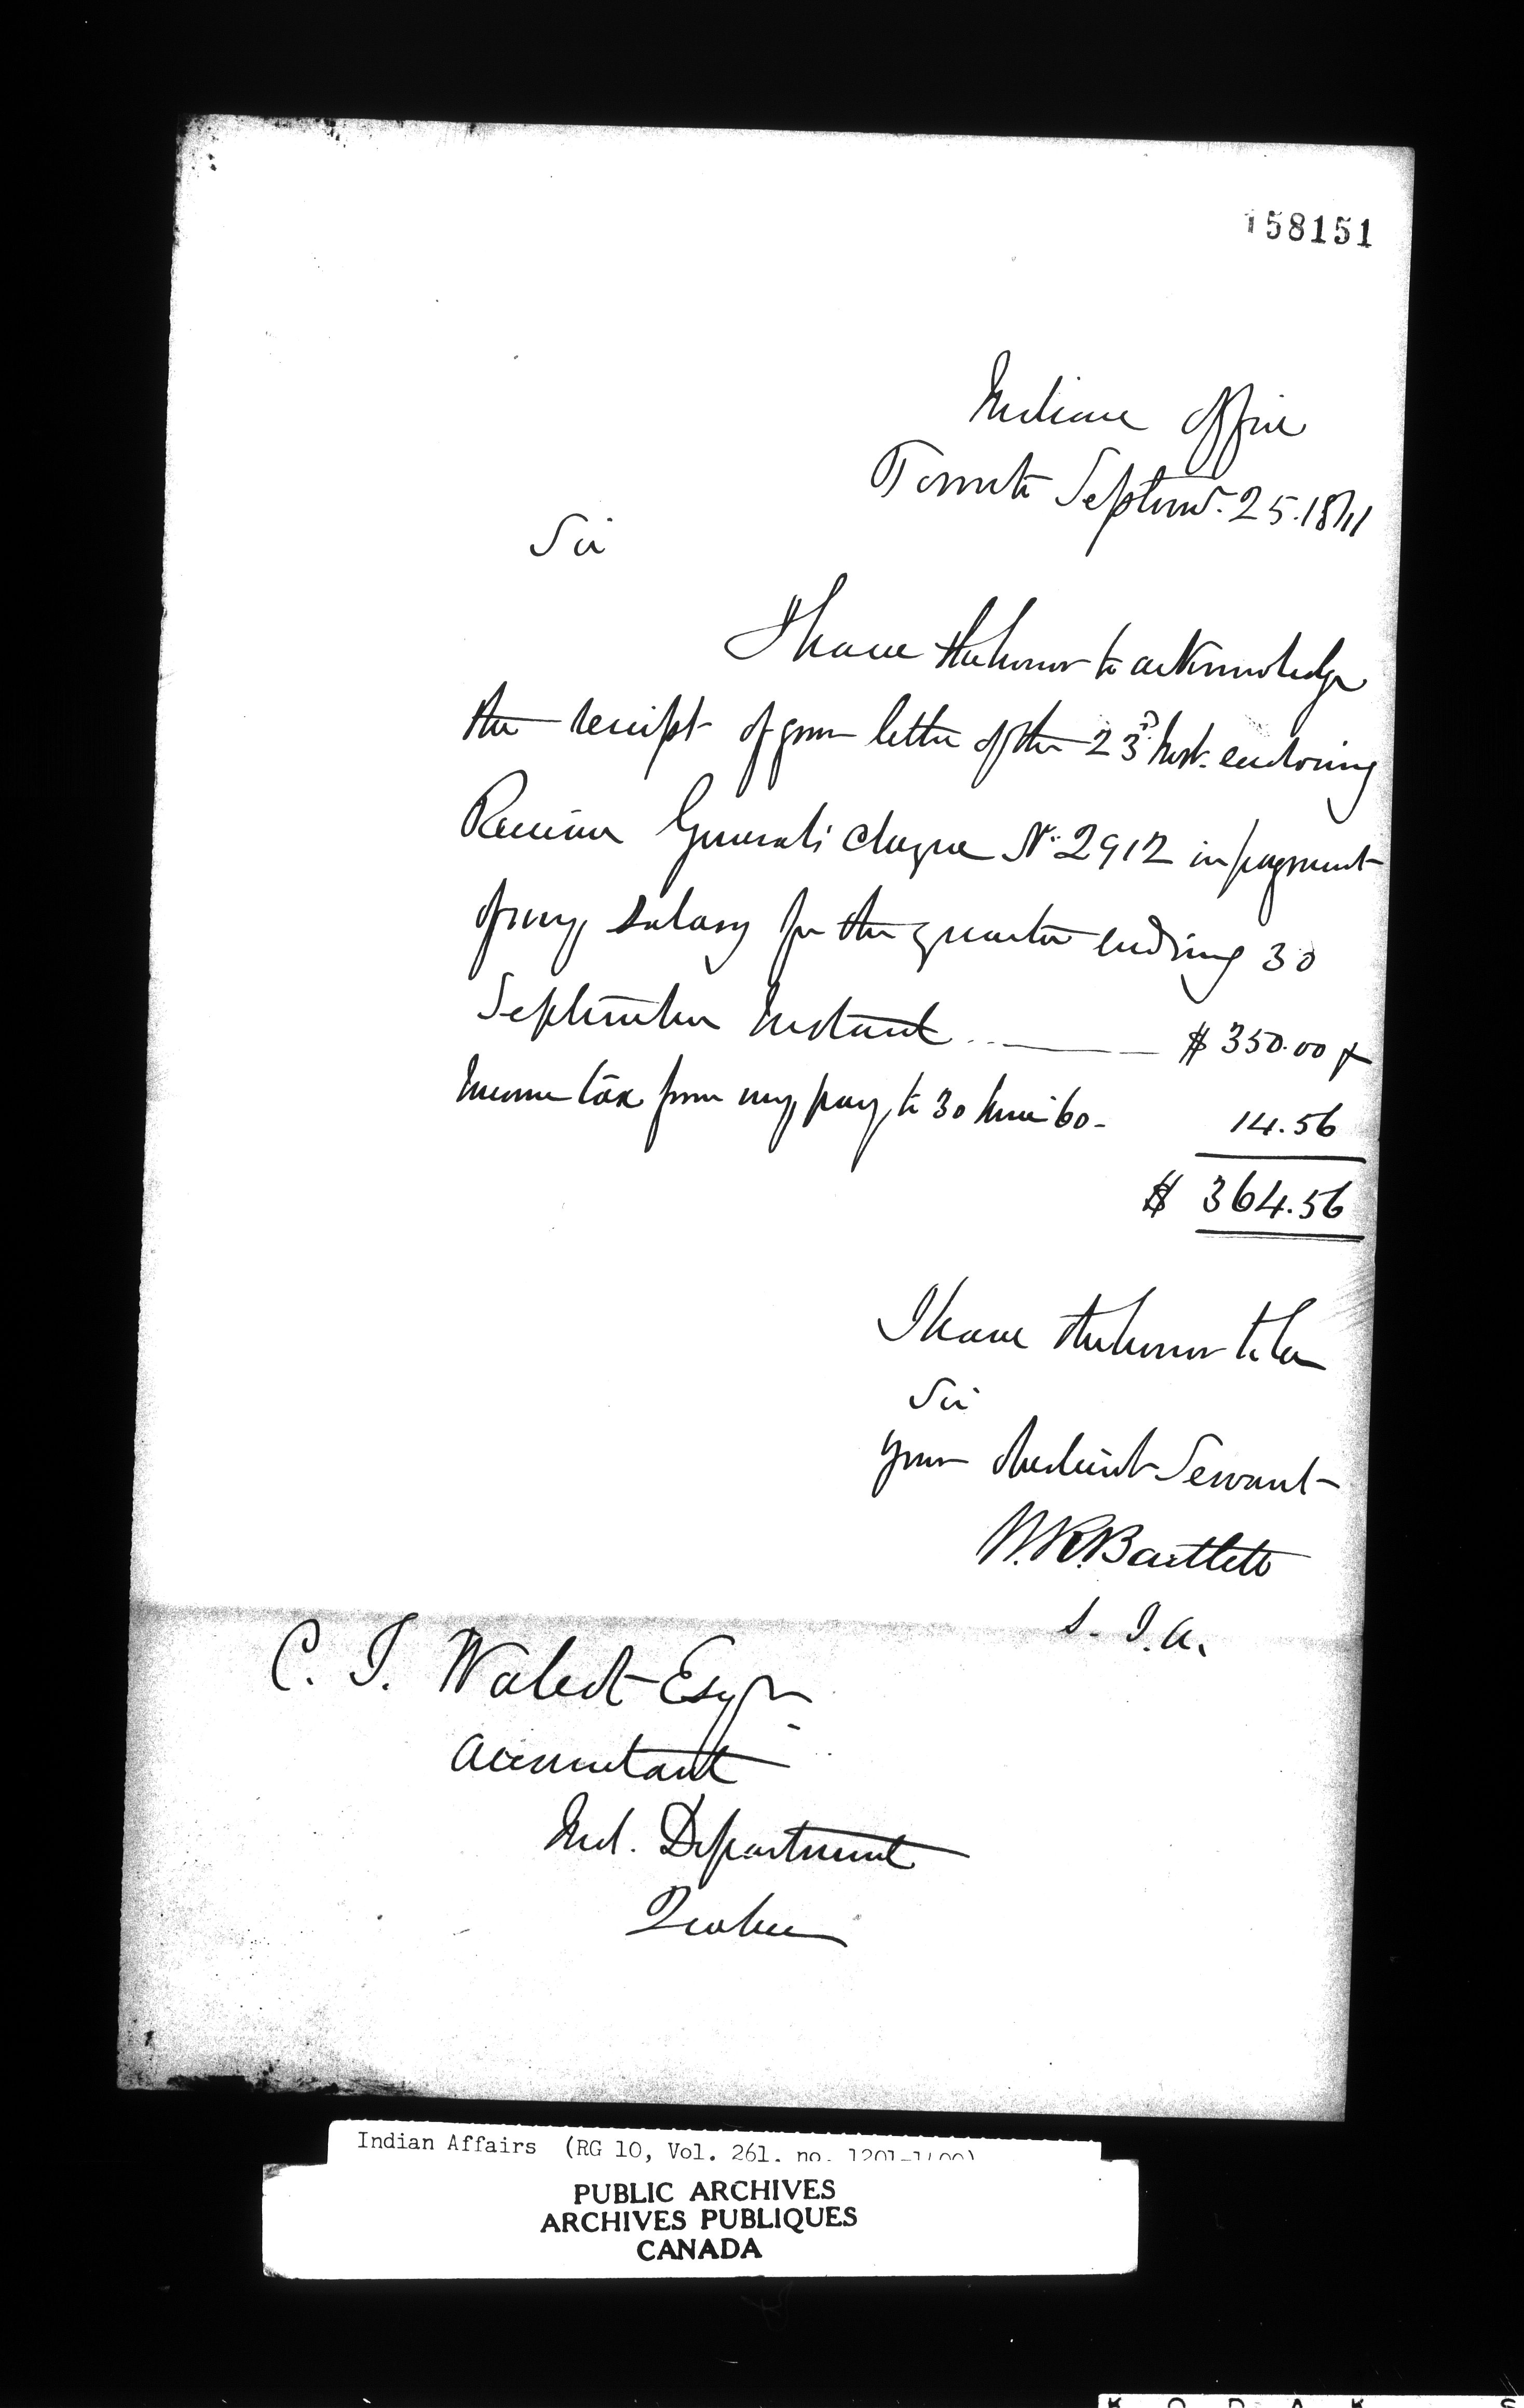 158151
Indian Office
Toronto Septem. 25. 1861
Sir
I have the honor to acknowledge
the receipt of your letter of the 23d Inst. enclosing
Receiver Generals cheque No. 2912 in payment
of my salary for the quarter ending 30
September Instant $ 350.00 &
Income tax from my pay to 30 June 60 - 14.56
$ 364.56
I have the honor to be
Sir
your obedient Servant
W.R. Bartlett
S. I. A.
C. T. Walcot Esqr
Accountant
Ind. Department
Quebec
Indian Affairs (RG 10, Vol. 261, no. 1201-1400)
PUBLIC ARCHIVES
ARCHIVES PUBLIQUES
CANADA
K O D A K S